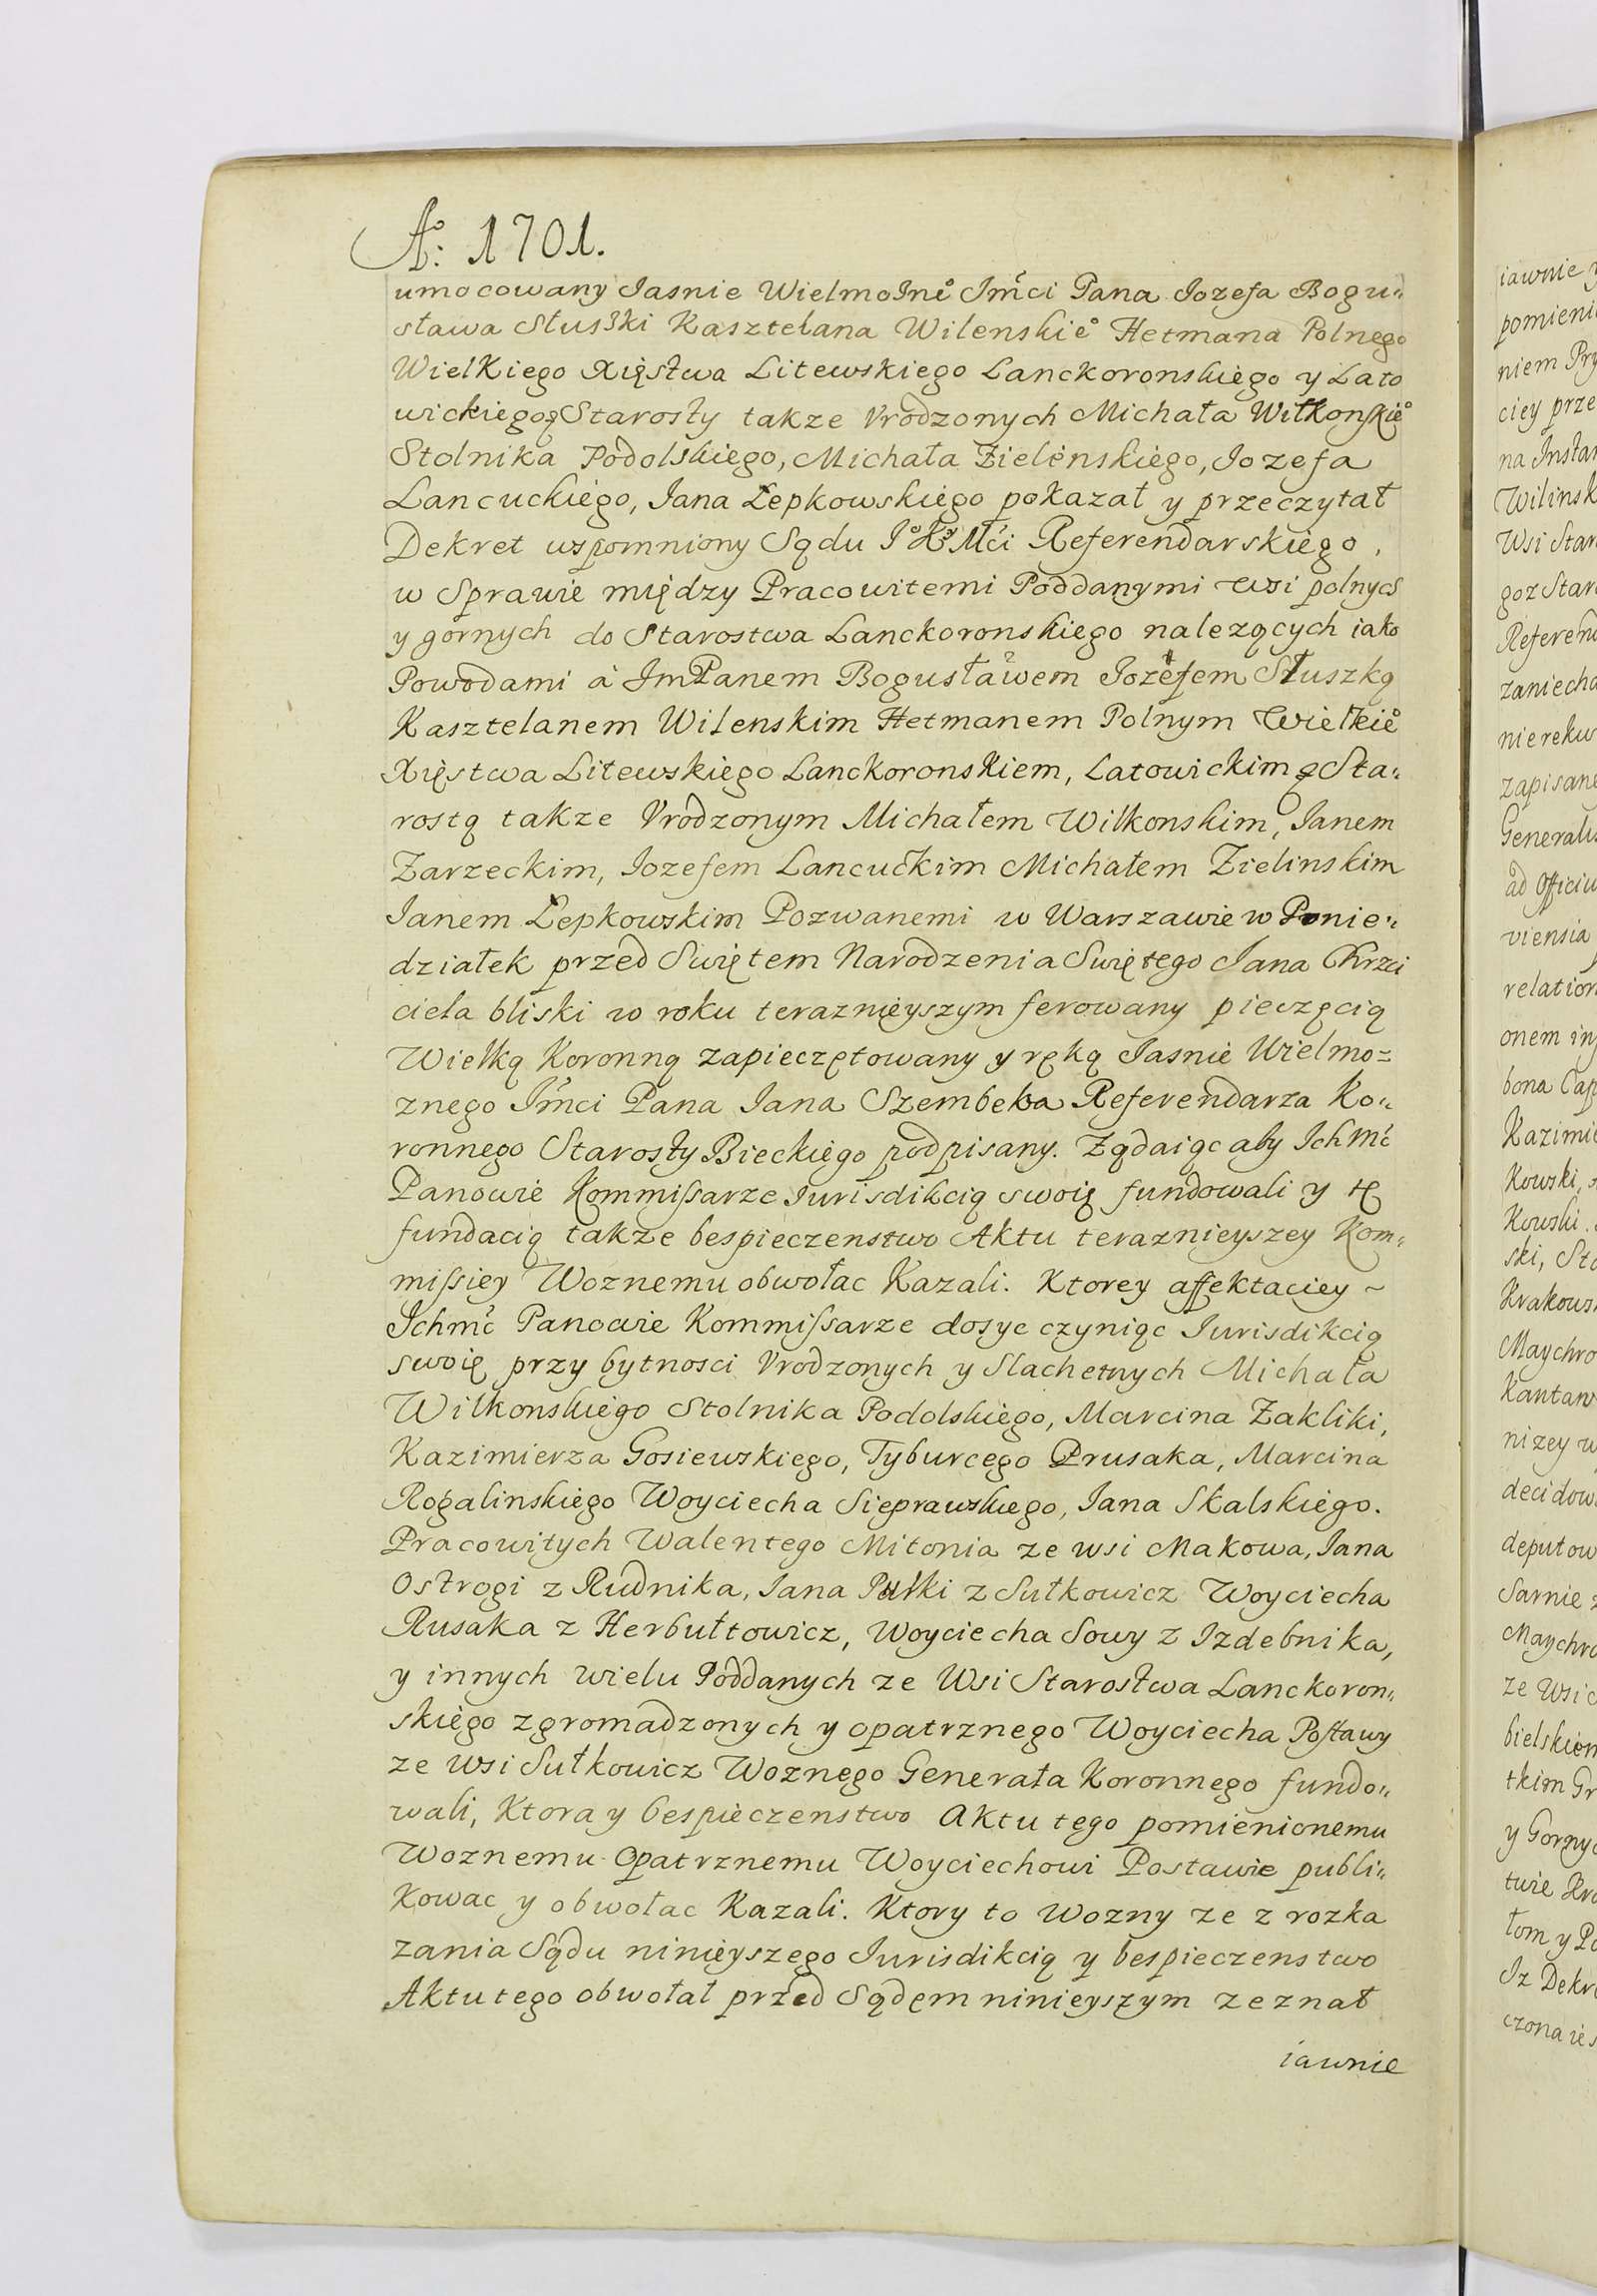 Aº: 1701.
umocowany Jasnie Wielmożneº Jm̃ci Pana Iozefa Bogu„
sława Słuszki Kasztelana Wilenskieº Hetmana Polnego
Wielkiego Xięstwa Litewskiego Lanckoronskiego y Lato
wickiego Starosty takze Vrodzonych Michała Wilkonskieº
Stolnika Podolskiego, Michała Zielenskiego, Iozefa
Lancuckiego, Jana Lepkowskiego pokazał y przeczytał
Dekret wspomniony Sądu JºKº Mći Referendarskiego,
w Sprawie między Pracowitemi Poddanymi wsi polnych
y gornych do Starostwa Lanckoronskiego nalezących iako
Powodami à ImPanem Bogusławem Jozefem Słuszką
Kasztelanem Wilenskim Hetmanem Polnym Wielkieº
Xięstwa Litewskiego Lanckoronskiem, Latowickim Sta„
rostą takze Vrodzonym Michałem Wilkonskim, Janem
Zarzeckim, Iozefem Lancuckim Michałem Zielinskim
Ianem Lepkowskim Pozwanemi w Warszawie w Ponie„
działek przed Swiętem Narodzenia Swiętego Jana Chrzci
ciela bliski w roku teraznieyszym ferowany pieczęcią
Wielką Koronną zapieczętowany y ręką Jasnie Wielmo=
znego Jm̃ci Pana Jana Szembeka Referendarza Ko„
ronnego Starosty Bieckiego podpisany. Ządaiąc aby Ich Mć
Panowie Kommissarze Iurisdikcią swoię fundowali y tę
fundacią takze bespieczenstwo Aktu teraznieyszey Kom„
missiey Woznemu obwołac Kazali. Ktorey affektaciey ~
Ichmć Panowie Kommissarze dosyc czyniąc Iurisdikcią
swoię przy bytnosci Vrodzonych y Slachetnych Michała
Wilkonskiego Stolnika Podolskiego, Marcina Zakliki,
Kazimierza Gosiewskiego, Tyburcego Prusaka, Marcina
Rogalinskiego Woyciecha Sieprawskiego, Jana Skalskiego.
Pracowitych Walentego Mitonia ze wsi Makowa, Jana
Ostrogi z Rudnika, Iana Pułki z Sułkowicz Woyciecha
Rusaka z Herbułtowicz, Woyciecha Sowy z Izdebnika,
y innych wielu Poddanych ze Wsi Starostwa Lanckoron„
skiego zgromadzonych y opatrznego Woyciecha Postawy
ze wsi Sułkowicz Woznego Generała Koronnego fundo„
wali, Ktora y bespieczenstwo Aktu tego pomienionemu
Woznemu Opatrznemu Woyciechowi Postawie publi„
Kowac y obwołac Kazali. Ktory to Wozny ze z rozka
zania Sądu ninieyszego Iurisdikcią y bespieczenstwo
Aktu tego obwołał przed Sądem ninieyszym zeznał
iawnie
iawnie
niem
ciey prze
na
Wsi
zaniecha
onem
bona
Kazimi
Kowski,
ski,
nizey
deputow
Sarnie
ze wsi
y Gornyc